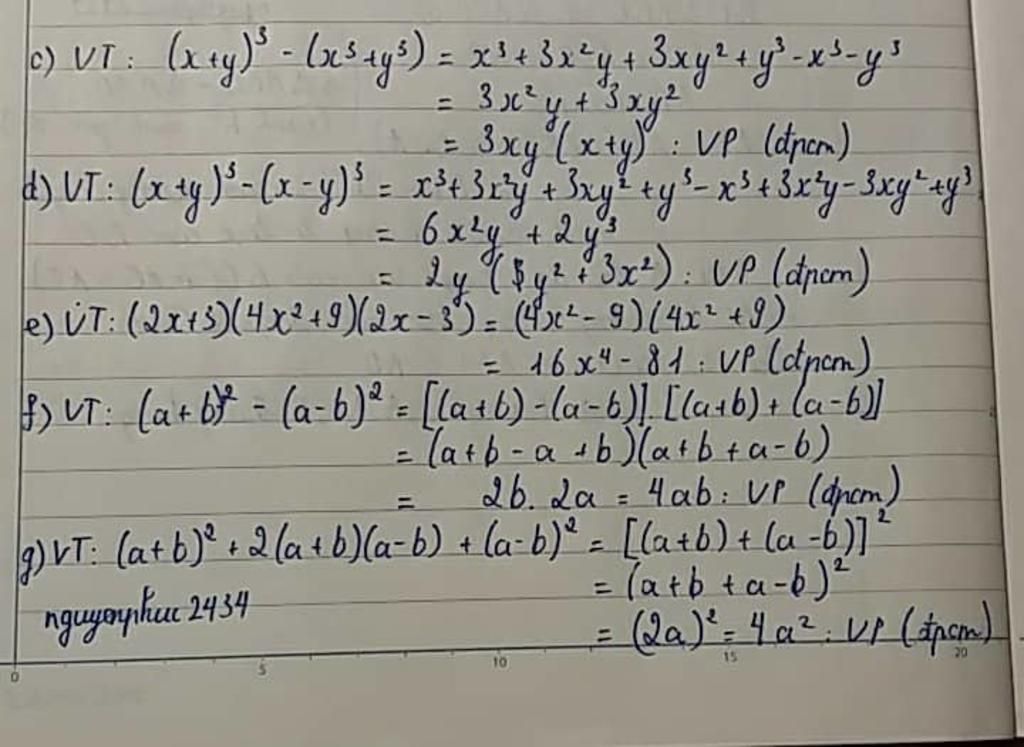 c) VT: (x+y)³ - (x³+y³) = x³ + 3x²y + 3xy² + y³ - x³ - y³
= 3x²y + 3xy²
= 3xy (x+y) : VP (đpcm)
d) VT: (x+y)³ - (x-y)³ = x³ + 3x²y + 3xy² + y³ - x³ + 3x²y - 3xy² + y³
= 6x²y + 2y³
= 2y (y² + 3x²) : VP (đpcm)
e) VT: (2x+3)(4x²+9)(2x-3) = (4x²-9)(4x²+9)
= 16x⁴ - 81 : VP (đpcm)
f) VT: (a+b)² - (a-b)² = [(a+b)-(a-b)].[(a+b)+(a-b)]
= (a+b-a+b)(a+b+a-b)
= 2b.2a = 4ab : VP (đpcm)
g) VT: (a+b)² + 2(a+b)(a-b) + (a-b)² = [(a+b)+(a-b)]²
= (a+b+a-b)²
nguyenphuc2434
= (2a)² = 4a² : VP (đpcm)
0 5 10 15 20